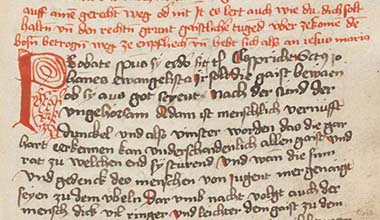 auff aine gerecht weg od nit Er lert auch wie du dich solt
haltn vn den rechtn grunt gaistliche tuged vber zekome de
bosn betrogn weg ze enpflieh vn hebt sich also an iesus maria
Probate spus si ex do sut Es spricht Sctus io
hanes ewangelista ir solt die gaist bewaern
ob sy aus got seyent nach der sund der
vngehorsam adam ist menschlich vernufft
dunckel und also vinster worden das die gar
hart erkennen kan vnderschaidenlich allen gaist und
rat zu welchen end sy sturend und wan die sinn
und gedenck des menschen von iugent mer genaigt
seyen zu dem ubeln Dar umb nache volgt auch der
mensch dick vil ringer und leichter dem gaist zu dem